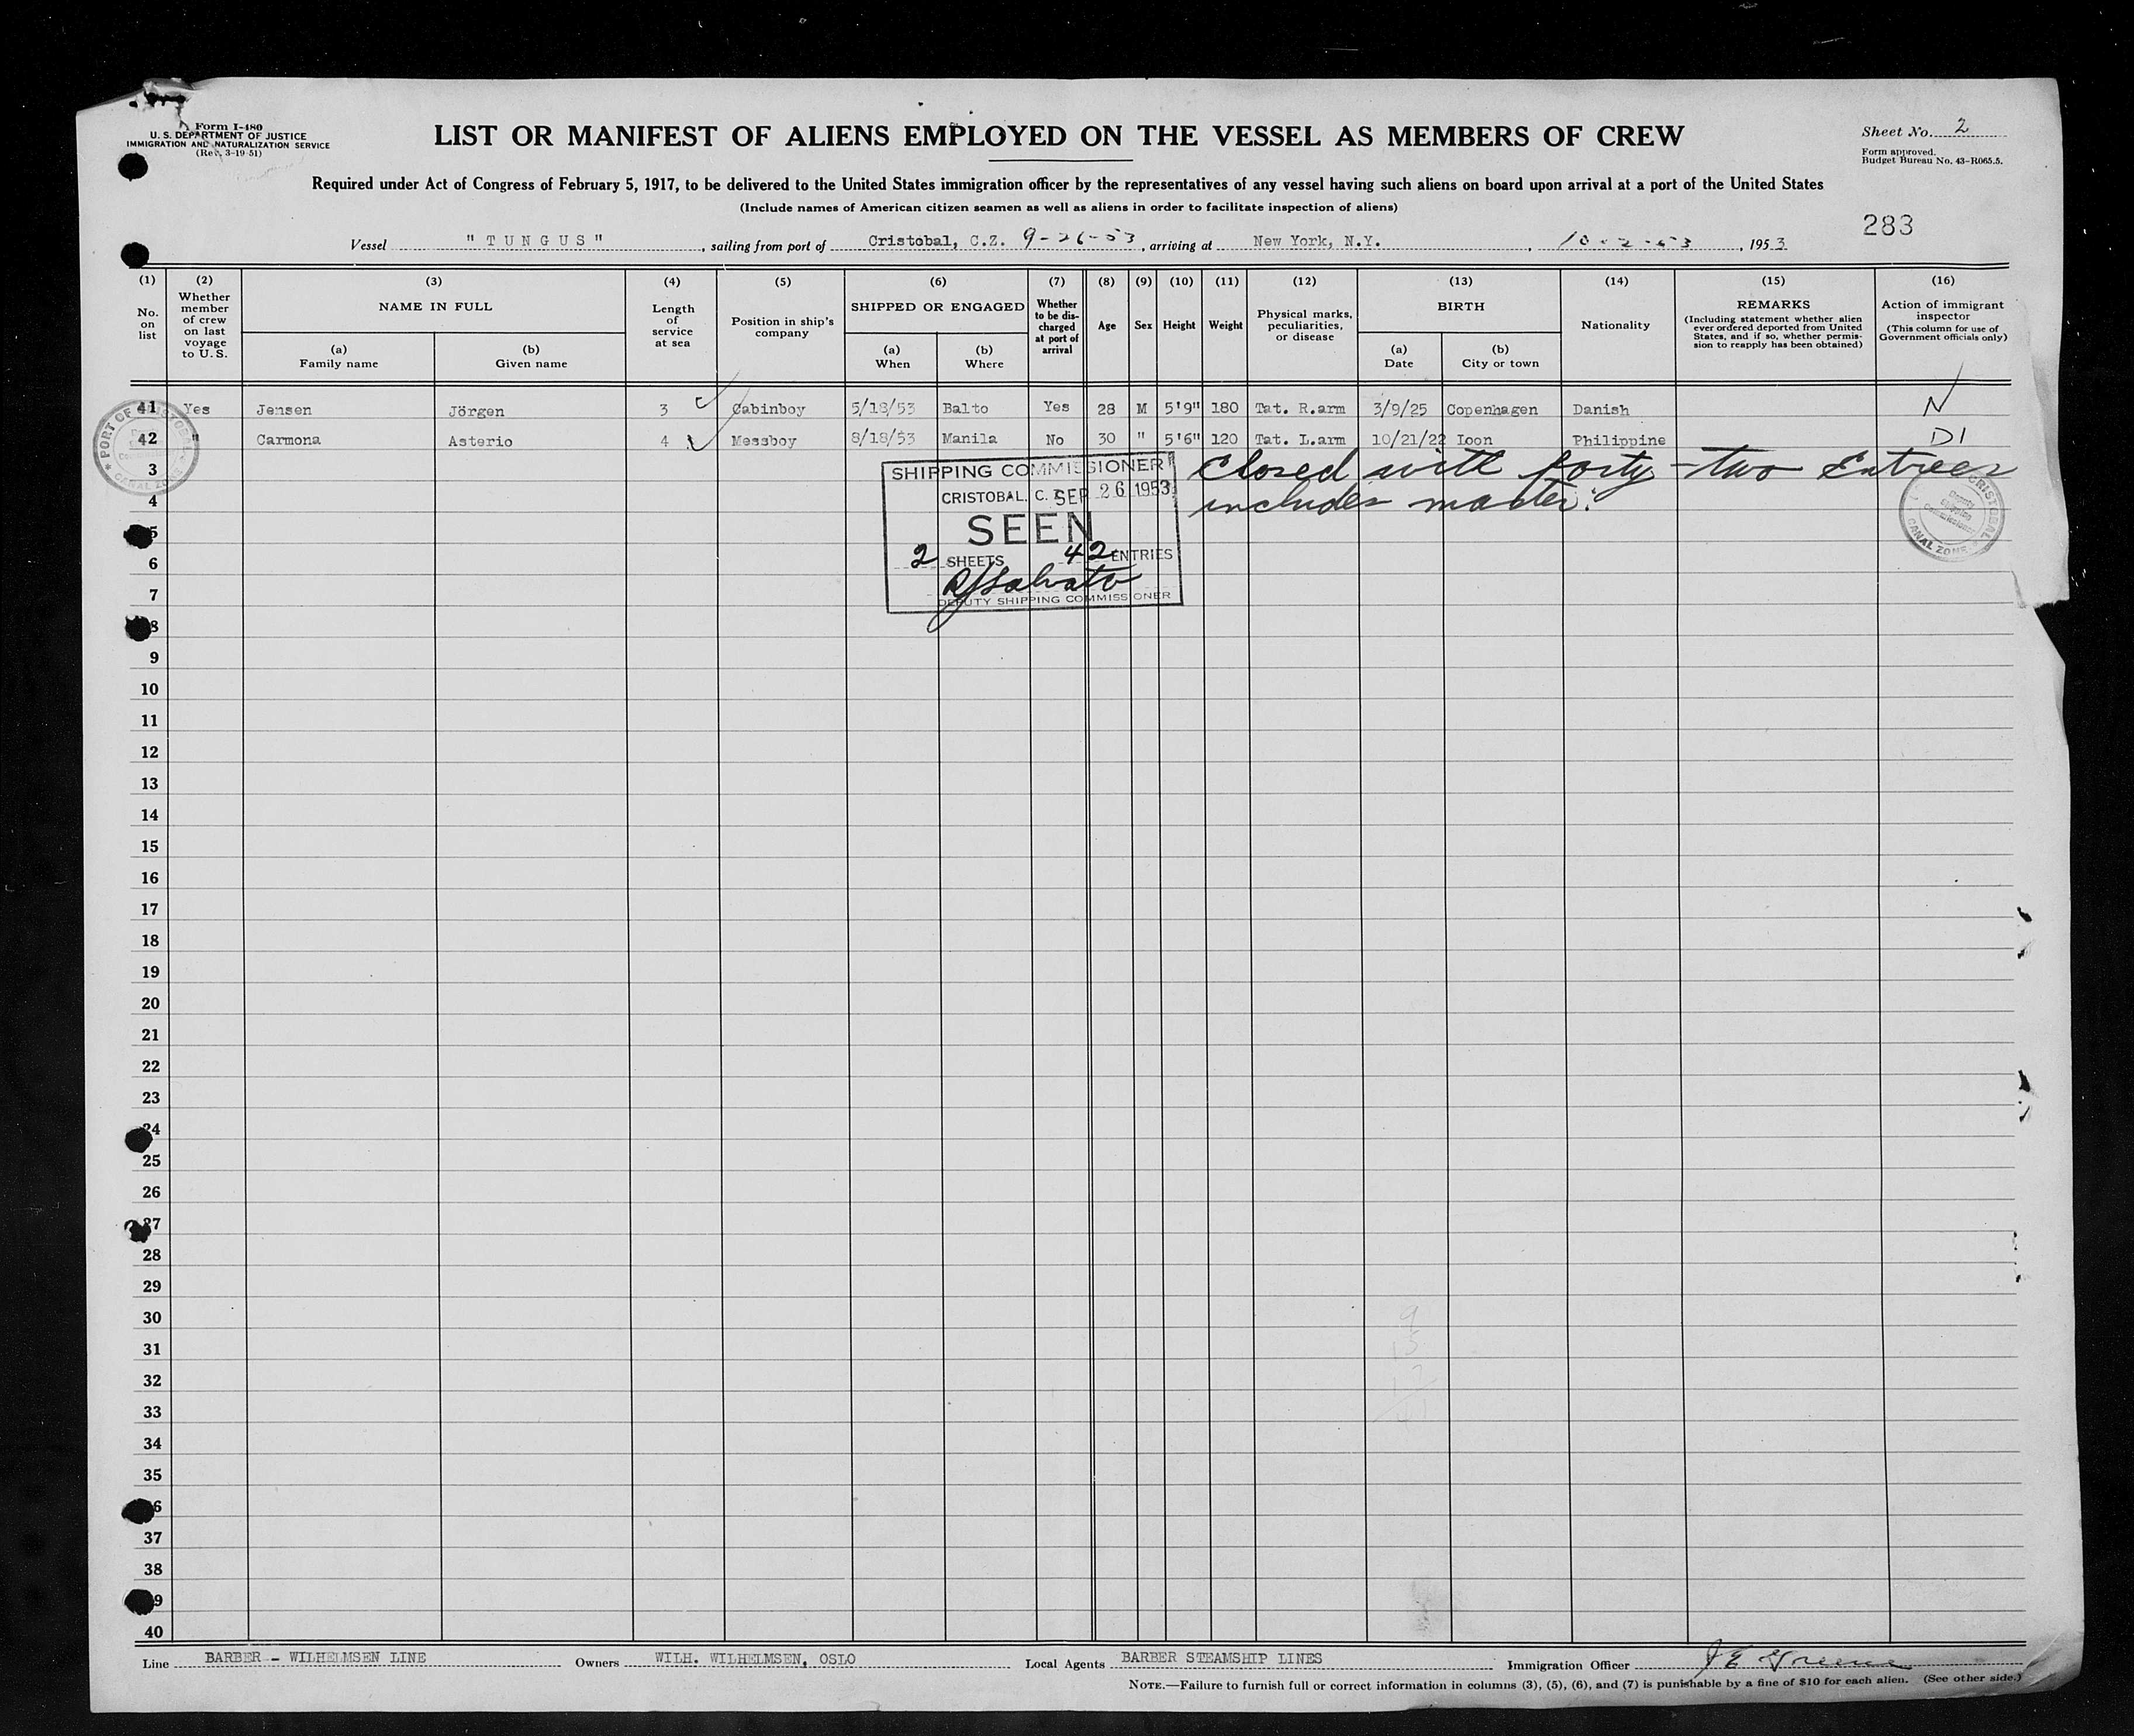 Form I-480
U. S. DEPARTMENT OF JUSTICE
IMMIGRATION AND NATURALIZATION SERVICE
(Rev. 3-19-51)
LIST OR MANIFEST OF ALIENS EMPLOYED ON THE VESSEL AS MEMBERS OF CREW
Sheet No. 2
Form approved.
Budget Bureau No. 43-R065.5.
Required under Act of Congress of February 5, 1917, to be delivered to the United States immigration officer by the representatives of any vessel having such aliens on board upon arrival at a port of the United States
(Include names of American citizen seamen as well as aliens in order to facilitate inspection of aliens)
283
Vessel "TUNGUS", sailing from port of Cristobal, C.Z. 9-26-53, arriving at New York, N.Y., 10-2-53, 1953
(1) No. on list
(2) Whether member of crew on last voyage to U. S.
(3) NAME IN FULL
(a) Family name
(b) Given name
(4) Length of service at sea
(5) Position in ship's company
(6) SHIPPED OR ENGAGED
(a) When
(b) Where
(7) Whether to be discharged at port of arrival
(8) Age
(9) Sex
(10) Height
(11) Weight
(12) Physical marks, peculiarities, or disease
(13) BIRTH
(a) Date
(b) City or town
(14) Nationality
(15) REMARKS
(Including statement whether alien ever ordered deported from United States, and if so, whether permission to reapply has been obtained)
(16) Action of immigrant inspector
(This column for use of Government officials only)
41 Yes Jensen Jörgen 3 Cabinboy 5/18/53 Balto Yes 28 M 5'9" 180 Tat. R.arm 3/9/25 Copenhagen Danish N
42 " Carmona Asterio 4 Messboy 8/18/53 Manila No 30 " 5'6" 120 Tat. L.arm 10/21/22 Loon Philippine D1
PORT OF CRISTOBAL
CANAL ZONE
SHIPPING COMMISSIONER
CRISTOBAL, C. Z. SEP 26 1953
SEEN
2 SHEETS 42 ENTRIES
RJSalvato
DEPUTY SHIPPING COMMISSIONER
Closed with forty-two Entries
includes master.
CRISTOBAL
Deputy
Shipping
Commissioner
CANAL ZONE
3
4
5
6
7
8
9
10
11
12
13
14
15
16
17
18
19
20
21
22
23
24
25
26
27
28
29
30
31
32
33
34
35
36
37
38
39
40
Line BARBER - WILHELMSEN LINE Owners WILH. WILHELMSEN, OSLO Local Agents BARBER STEAMSHIP LINES Immigration Officer J E Greene
NOTE.—Failure to furnish full or correct information in columns (3), (5), (6), and (7) is punishable by a fine of $10 for each alien. (See other side.)